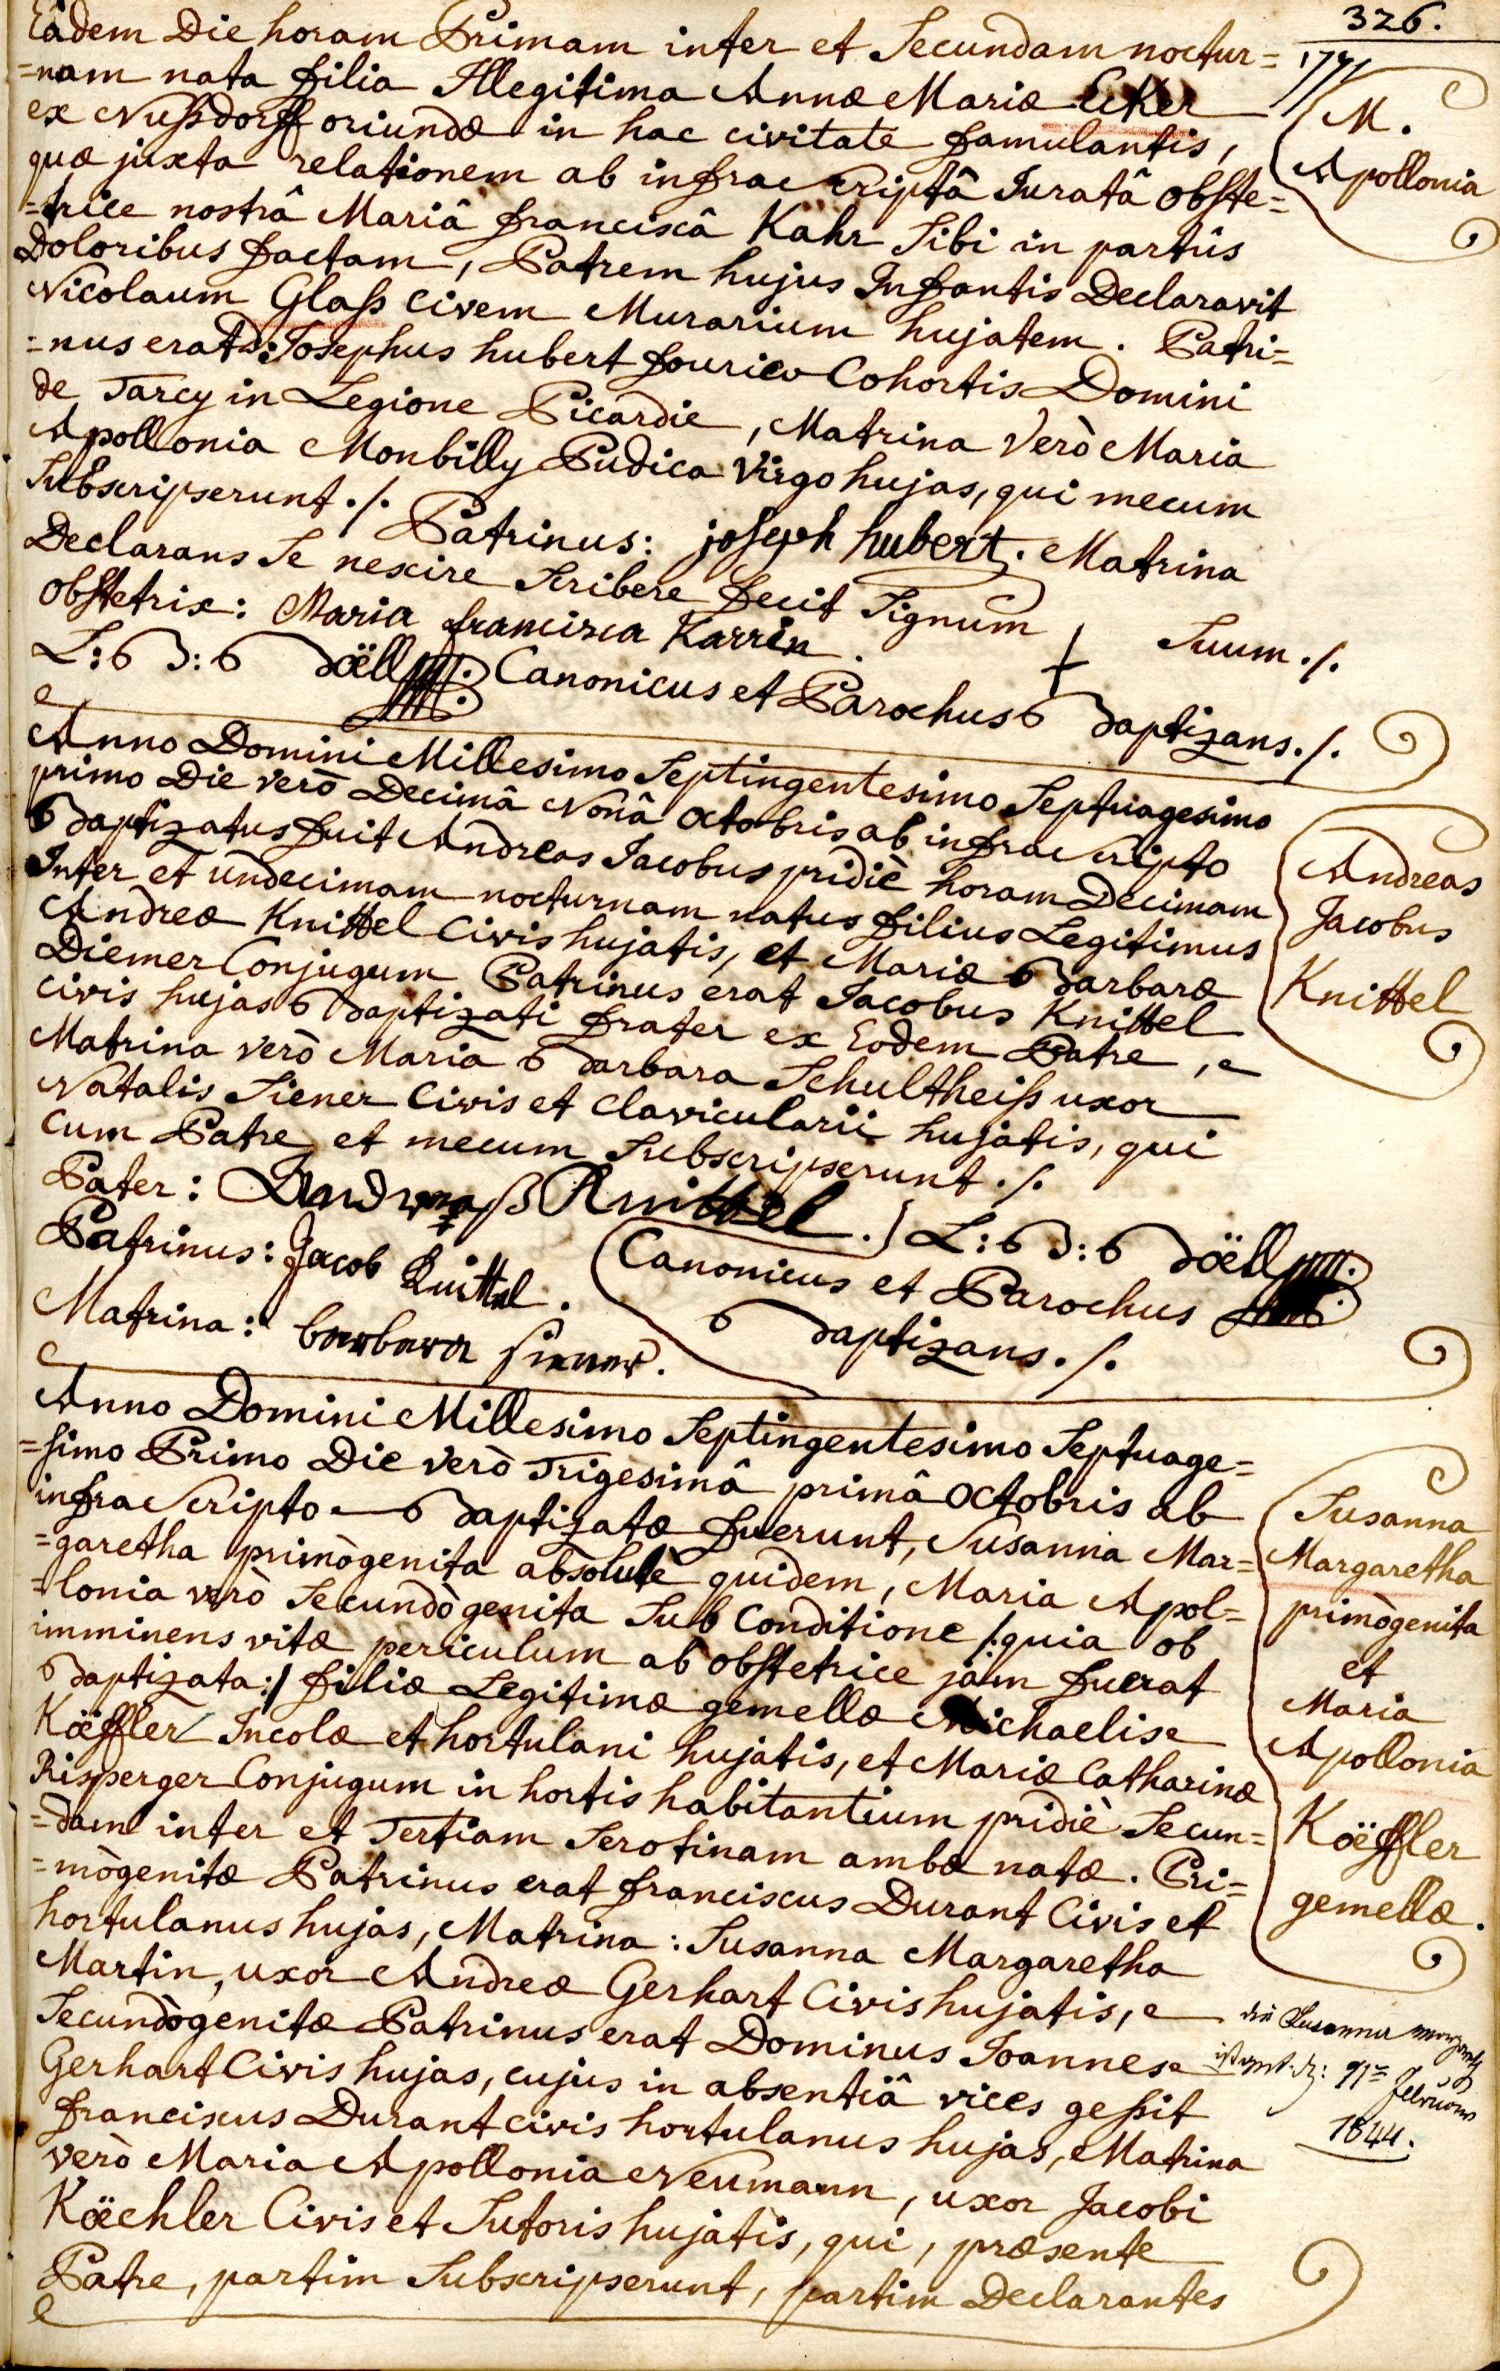 326.
1771
Eâdem Die horam Primam inter et Secundam noctur=
=nam nata filia Illegitima Annæ Mariæ Ecker
ex Nußdorff oriundæ in hac civitate famulantis,
quæ juxta relationem ab infrascriptâ Juratâ obste=
=trice nostrâ Mariâ franciscâ Kahr Sibi in partûs
Doloribus factam, Patrem hujus Infantis Declaravit
Nicolaum Glaß civem Murarium hujatem. Patri=
=nus erat D: Josephus hubert fourier Cohortis Domini
de Tarcy in Legione Picardie, Matrina Verò Maria
Apollonia Monbilly Pudica Virgo hujas, qui mecum
Subscripserunt ./. Patrinus: joseph hubert. Matrina
Declarans Se nescire Scribere fecit Signum † Suum ./.
Obstetrix: Maria francisca Karrin.
L: B: Böell Canonicus et Parochus Baptizans ./.
M.
Apollonia
Anno Domini Millesimo Septingentesimo Septuagesimo
primo Die verò Decimâ Nonâ octobris ab infrascripto
Baptizatus fuit Andreas Jacobus pridiè horam Decimam
Inter et undecimam nocturnam natus filius Legitimus
Andreæ Knittel Civis hujatis, et Mariæ Barbaræ
Diemer Conjugum Patrinus erat Jacobus Knittel
civis hujas Baptizati frater ex Eodem Patre,
Matrina verò Maria Barbara Schultheiß uxor
Natalis Siener Civis et clavicularii hujatis, qui
cum Patre et mecum Subscripserunt ./.
Pater: Andreaß Knittel.
Patrinus: Jacob Knittel.
Matrina: barbara siener.
L: B: Böell
Canonicus et Parochus
Baptizans ./.
Andreas
Jacobus
Knittel
Anno Domini Millesimo Septingentesimo Septuage=
=simo Primo Die verò Trigesimâ primâ Octobris ab
infrascripto Baptizatæ fuerunt, Susanna Mar=
=garetha primògenita absolutè quidem, Maria Apol=
=lonia verò Secundògenita Sub Conditione /: quia ob
imminens vitæ periculum ab obstetrice jam fuerat
Baptizata :/ filiæ Legitimæ gemellæ Michaelis
Köeffler Incolæ et hortulani hujatis, et Mariæ Catharinæ
Risperger Conjugum in hortis habitantium pridiè Secun=
=dam inter et Tertiam Serotinam ambæ natæ. Pri=
=mògenitæ Patrinus erat franciscus Durant Civis et
hortulanus hujas, Matrina: Susanna Margaretha
Martin, uxor Andreæ Gerhart Civis hujatis,
Secundògenitæ Patrinus erat Dominus Joannes
Gerhart Civis hujas, cujus in absentiâ vices geßit
franciscus Durant civis hortulanus hujas, Matrina
verò Maria Apollonia Neumann, uxor Jacobi
Köechler Civis et Sutoris hujatis, qui, præsente
Patre, partim Subscripserunt, partim Declarantes
Susanna
Margaretha
primògenita
et
Maria
Apollonia
Köeffler
gemellæ.
die Susanna
1844.